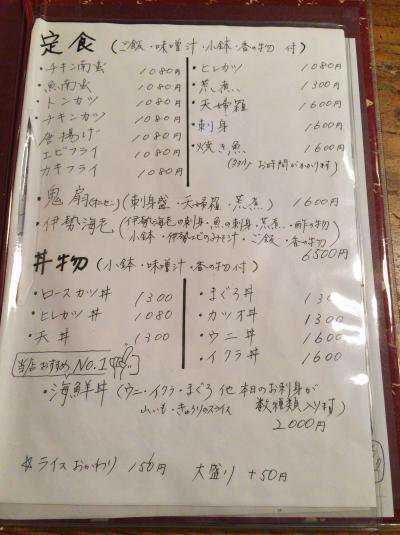 定食 (ご飯・味噌汁・小鉢・香の物 付)
・チキン南蛮 1080円
・魚南蛮 1080円
・トンカツ 1080円
・チキンカツ 1080円
・唐揚げ 1080円
・エビフライ 1080円
・カキフライ 1080円
・ヒレカツ 1080円
・荒煮 1300円
・天婦羅 1600円
・刺身 1600円
・焼き魚 1600円
お時間がかかります)
・鬼扇 (刺身盛・天婦羅・荒煮) 1600円
・伊勢海老 (伊勢海老の刺身・魚の刺身・荒煮・酢の物
小鉢・伊勢エビのみそ汁・ご飯・香の物)
6500円
丼物 (小鉢・味噌汁・香の物付)
・ロースカツ丼 1300
・ヒレカツ丼 1080
・天丼 1300
・まぐろ丼 1300
・カツオ丼 1300
・ウニ丼 1600
・イクラ丼 1600
当店おすすめ No.1
・海鮮丼 (ウニ・イクラ・まぐろ 他 本日のお刺身が
山いも・きゅうりのスライス 数種類入ります)
2000円
☆ライスおかわり 156円 大盛り +50円